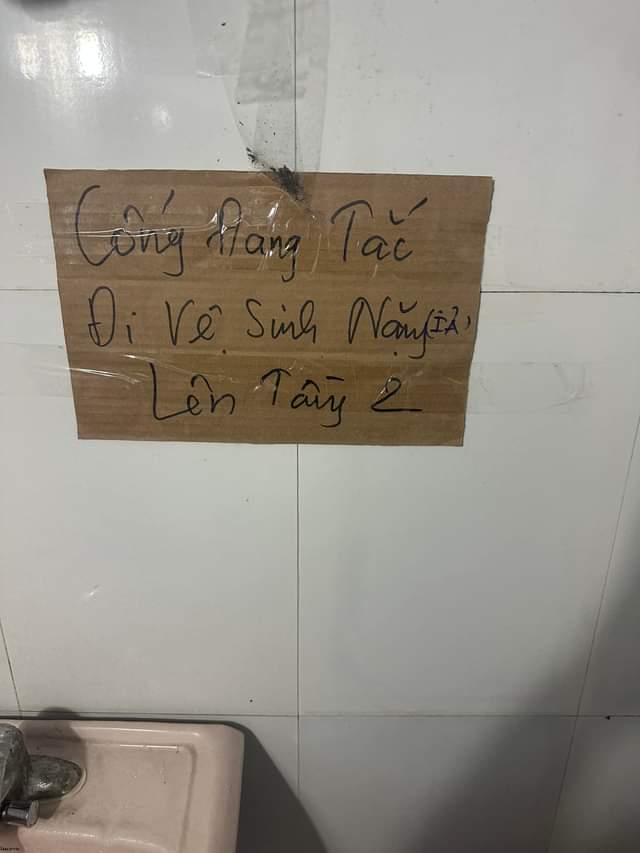 Cống Đang Tắc
Đi Vệ Sinh Nặng (ỈA)
Lên Tầng 2